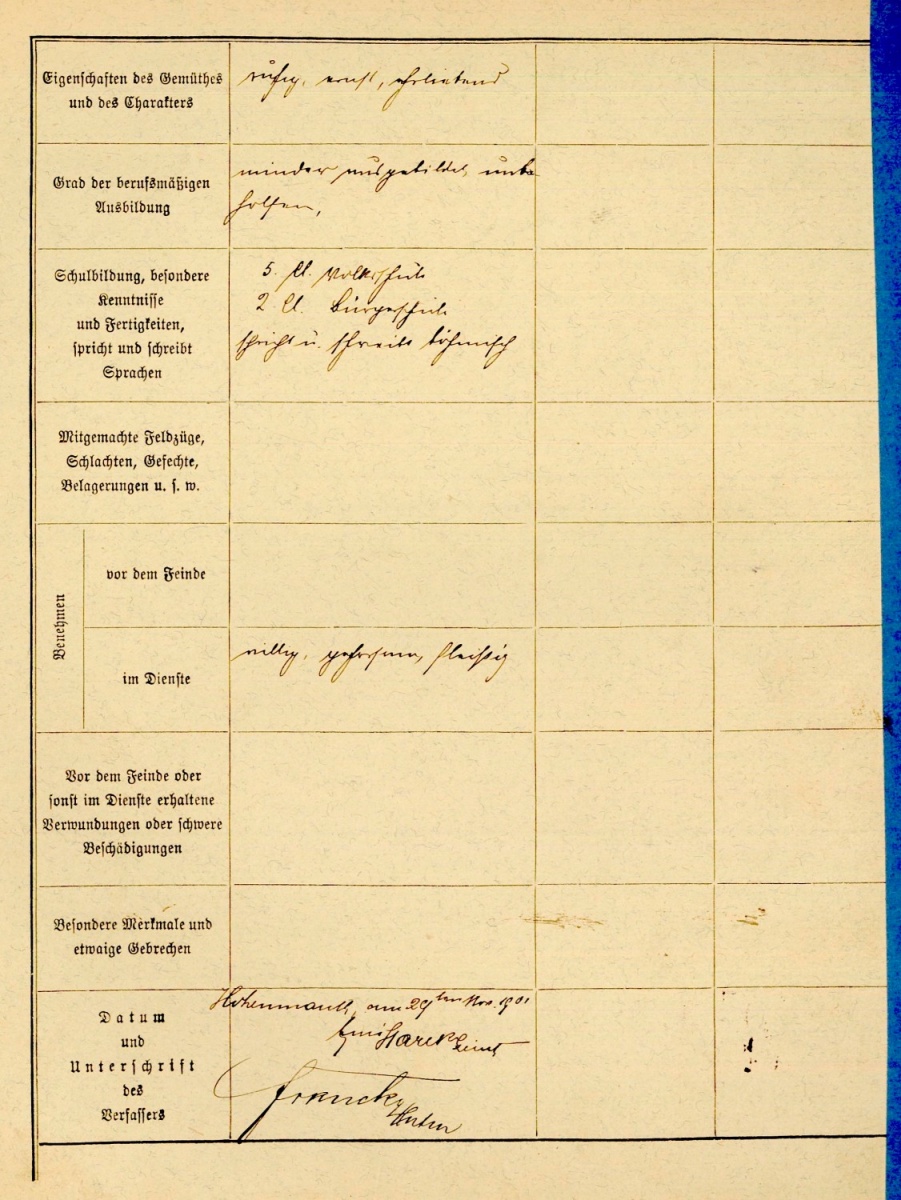 Eigenschaften des Gemüthes
und des Charakters
ruhig, ernst, ehrliebend
Grad der berufsmäßigen
Ausbildung
minder ausgebildet, unbe-
holfen,
Schulbildung, besondere
Kenntnisse
und Fertigkeiten,
spricht und schreibt
Sprachen
5. Cl. Volksschule
2 Cl. Bürgerschule
spricht u. schreibt böhmisch
Mitgemachte Feldzüge,
Schlachten, Gefechte,
Belagerungen u. s. w.
Benehmen
vor dem Feinde
im Dienste
willig, gehorsam, fleißig
Vor dem Feinde oder
sonst im Dienste erhaltene
Verwundungen oder schwere
Beschädigungen
Besondere Merkmale und
etwaige Gebrechen
Datum
und
Unterschrift
des
Verfassers
Hohenmauth, am 29ten Nov. 1901